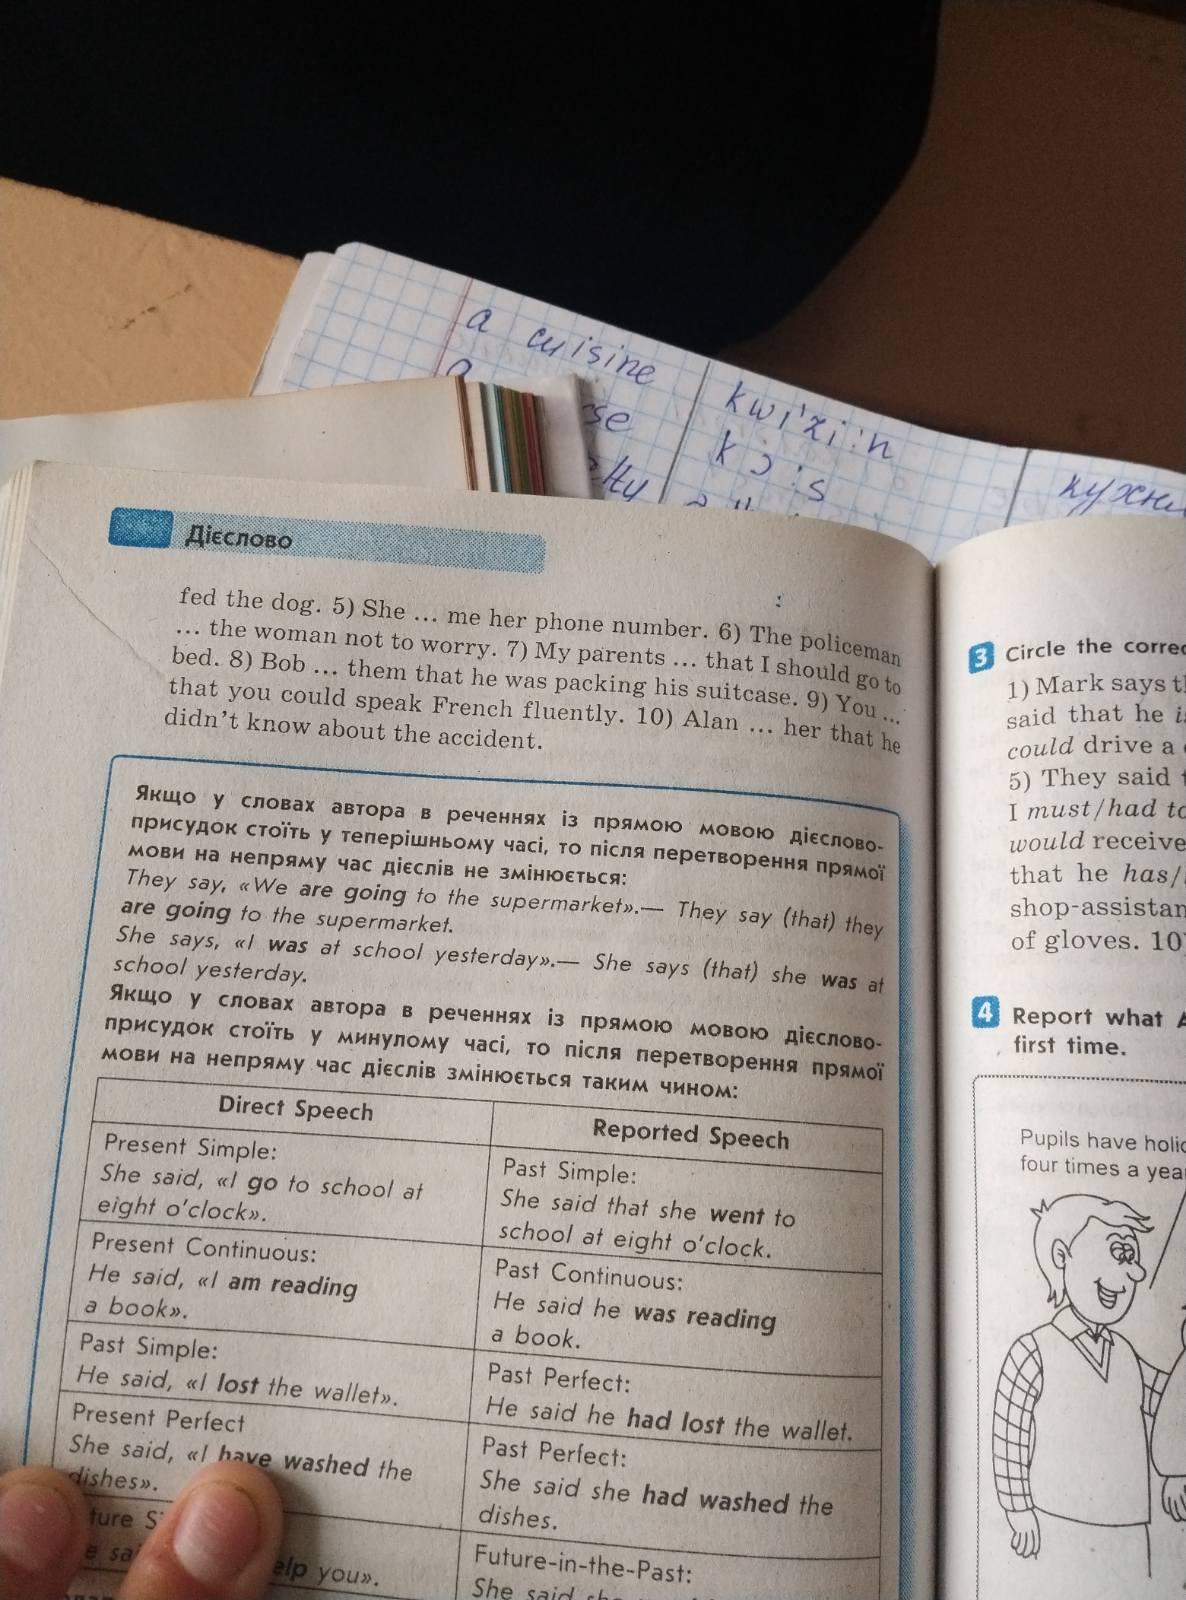 a cuisine kwi'zi:n кухн
a se kɔ:s
lty
Дієслово
fed the dog. 5) She ... me her phone number. 6) The policeman
... the woman not to worry. 7) My parents ... that I should go to
bed. 8) Bob ... them that he was packing his suitcase. 9) You ...
that you could speak French fluently. 10) Alan ... her that he
didn't know about the accident.
Якщо у словах автора в реченнях із прямою мовою дієслово-
присудок стоїть у теперішньому часі, то після перетворення прямої
мови на непряму час дієслів не змінюється:
They say, «We are going to the supermarket».— They say (that) they
are going to the supermarket.
She says, «I was at school yesterday».— She says (that) she was at
school yesterday.
Якщо у словах автора в реченнях із прямою мовою дієслово-
присудок стоїть у минулому часі, то після перетворення прямої
мови на непряму час дієслів змінюється таким чином:
Direct Speech
Reported Speech
Present Simple:
She said, «I go to school at
eight o'clock».
Past Simple:
She said that she went to
school at eight o'clock.
Present Continuous:
He said, «I am reading
a book».
Past Continuous:
He said he was reading
a book.
Past Simple:
He said, «I lost the wallet».
Past Perfect:
He said he had lost the wallet.
Present Perfect
She said, «I have washed the
dishes».
Past Perfect:
She said she had washed the
dishes.
ture S
e sa elp you».
Future-in-the-Past:
She said she
3 Circle the correc
1) Mark says t
said that he i
could drive a
5) They said
I must/had to
would receive
that he has/
shop-assistan
of gloves. 10
4 Report what A
first time.
Pupils have holi
four times a yea